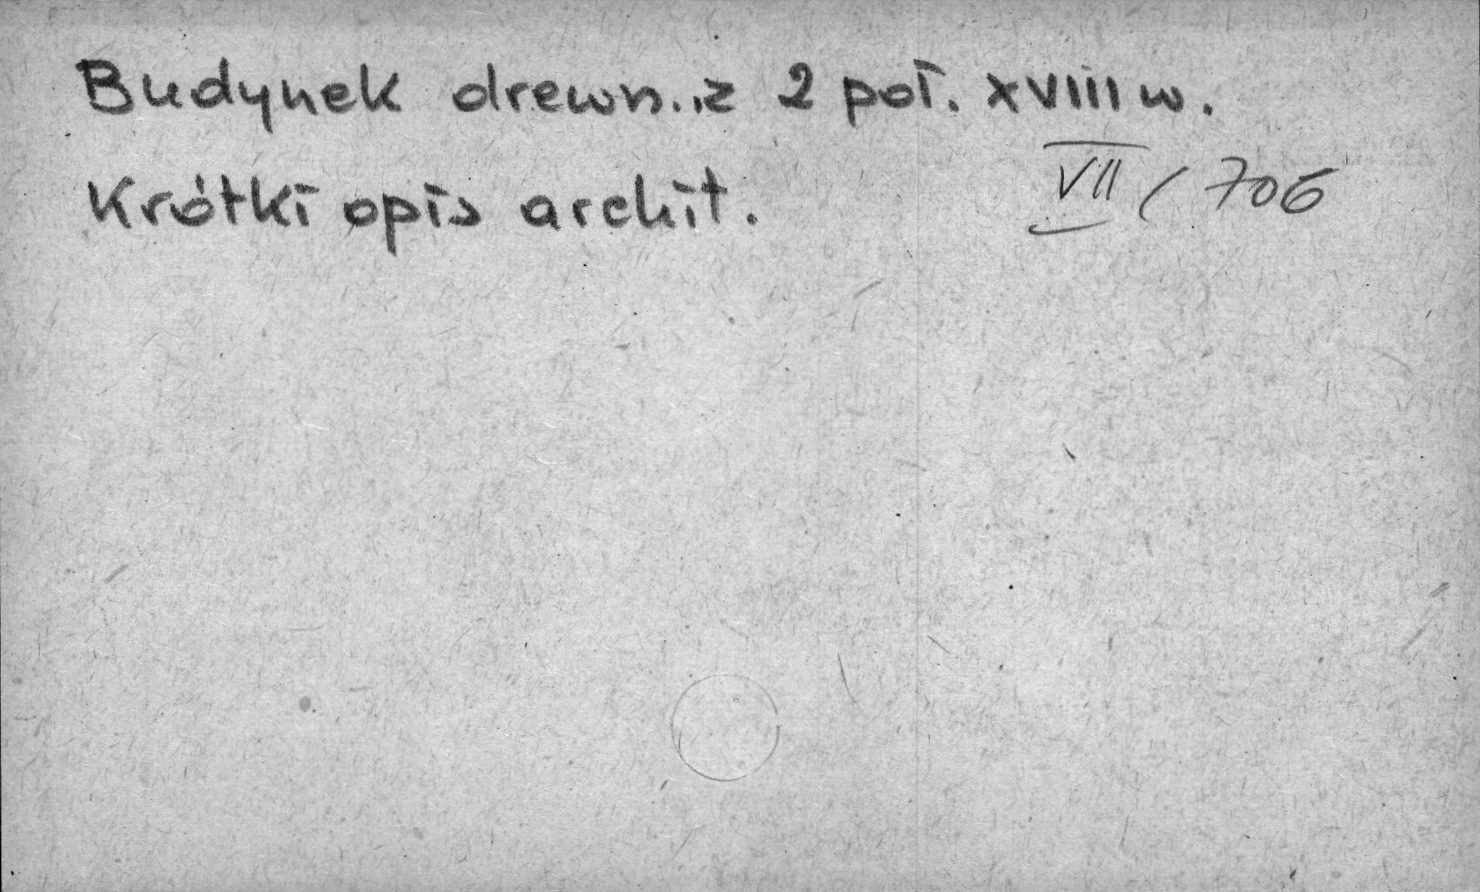 Budynek drewn. z 2 poł. XVIII w.
Krótki opis archit.
VII / 706